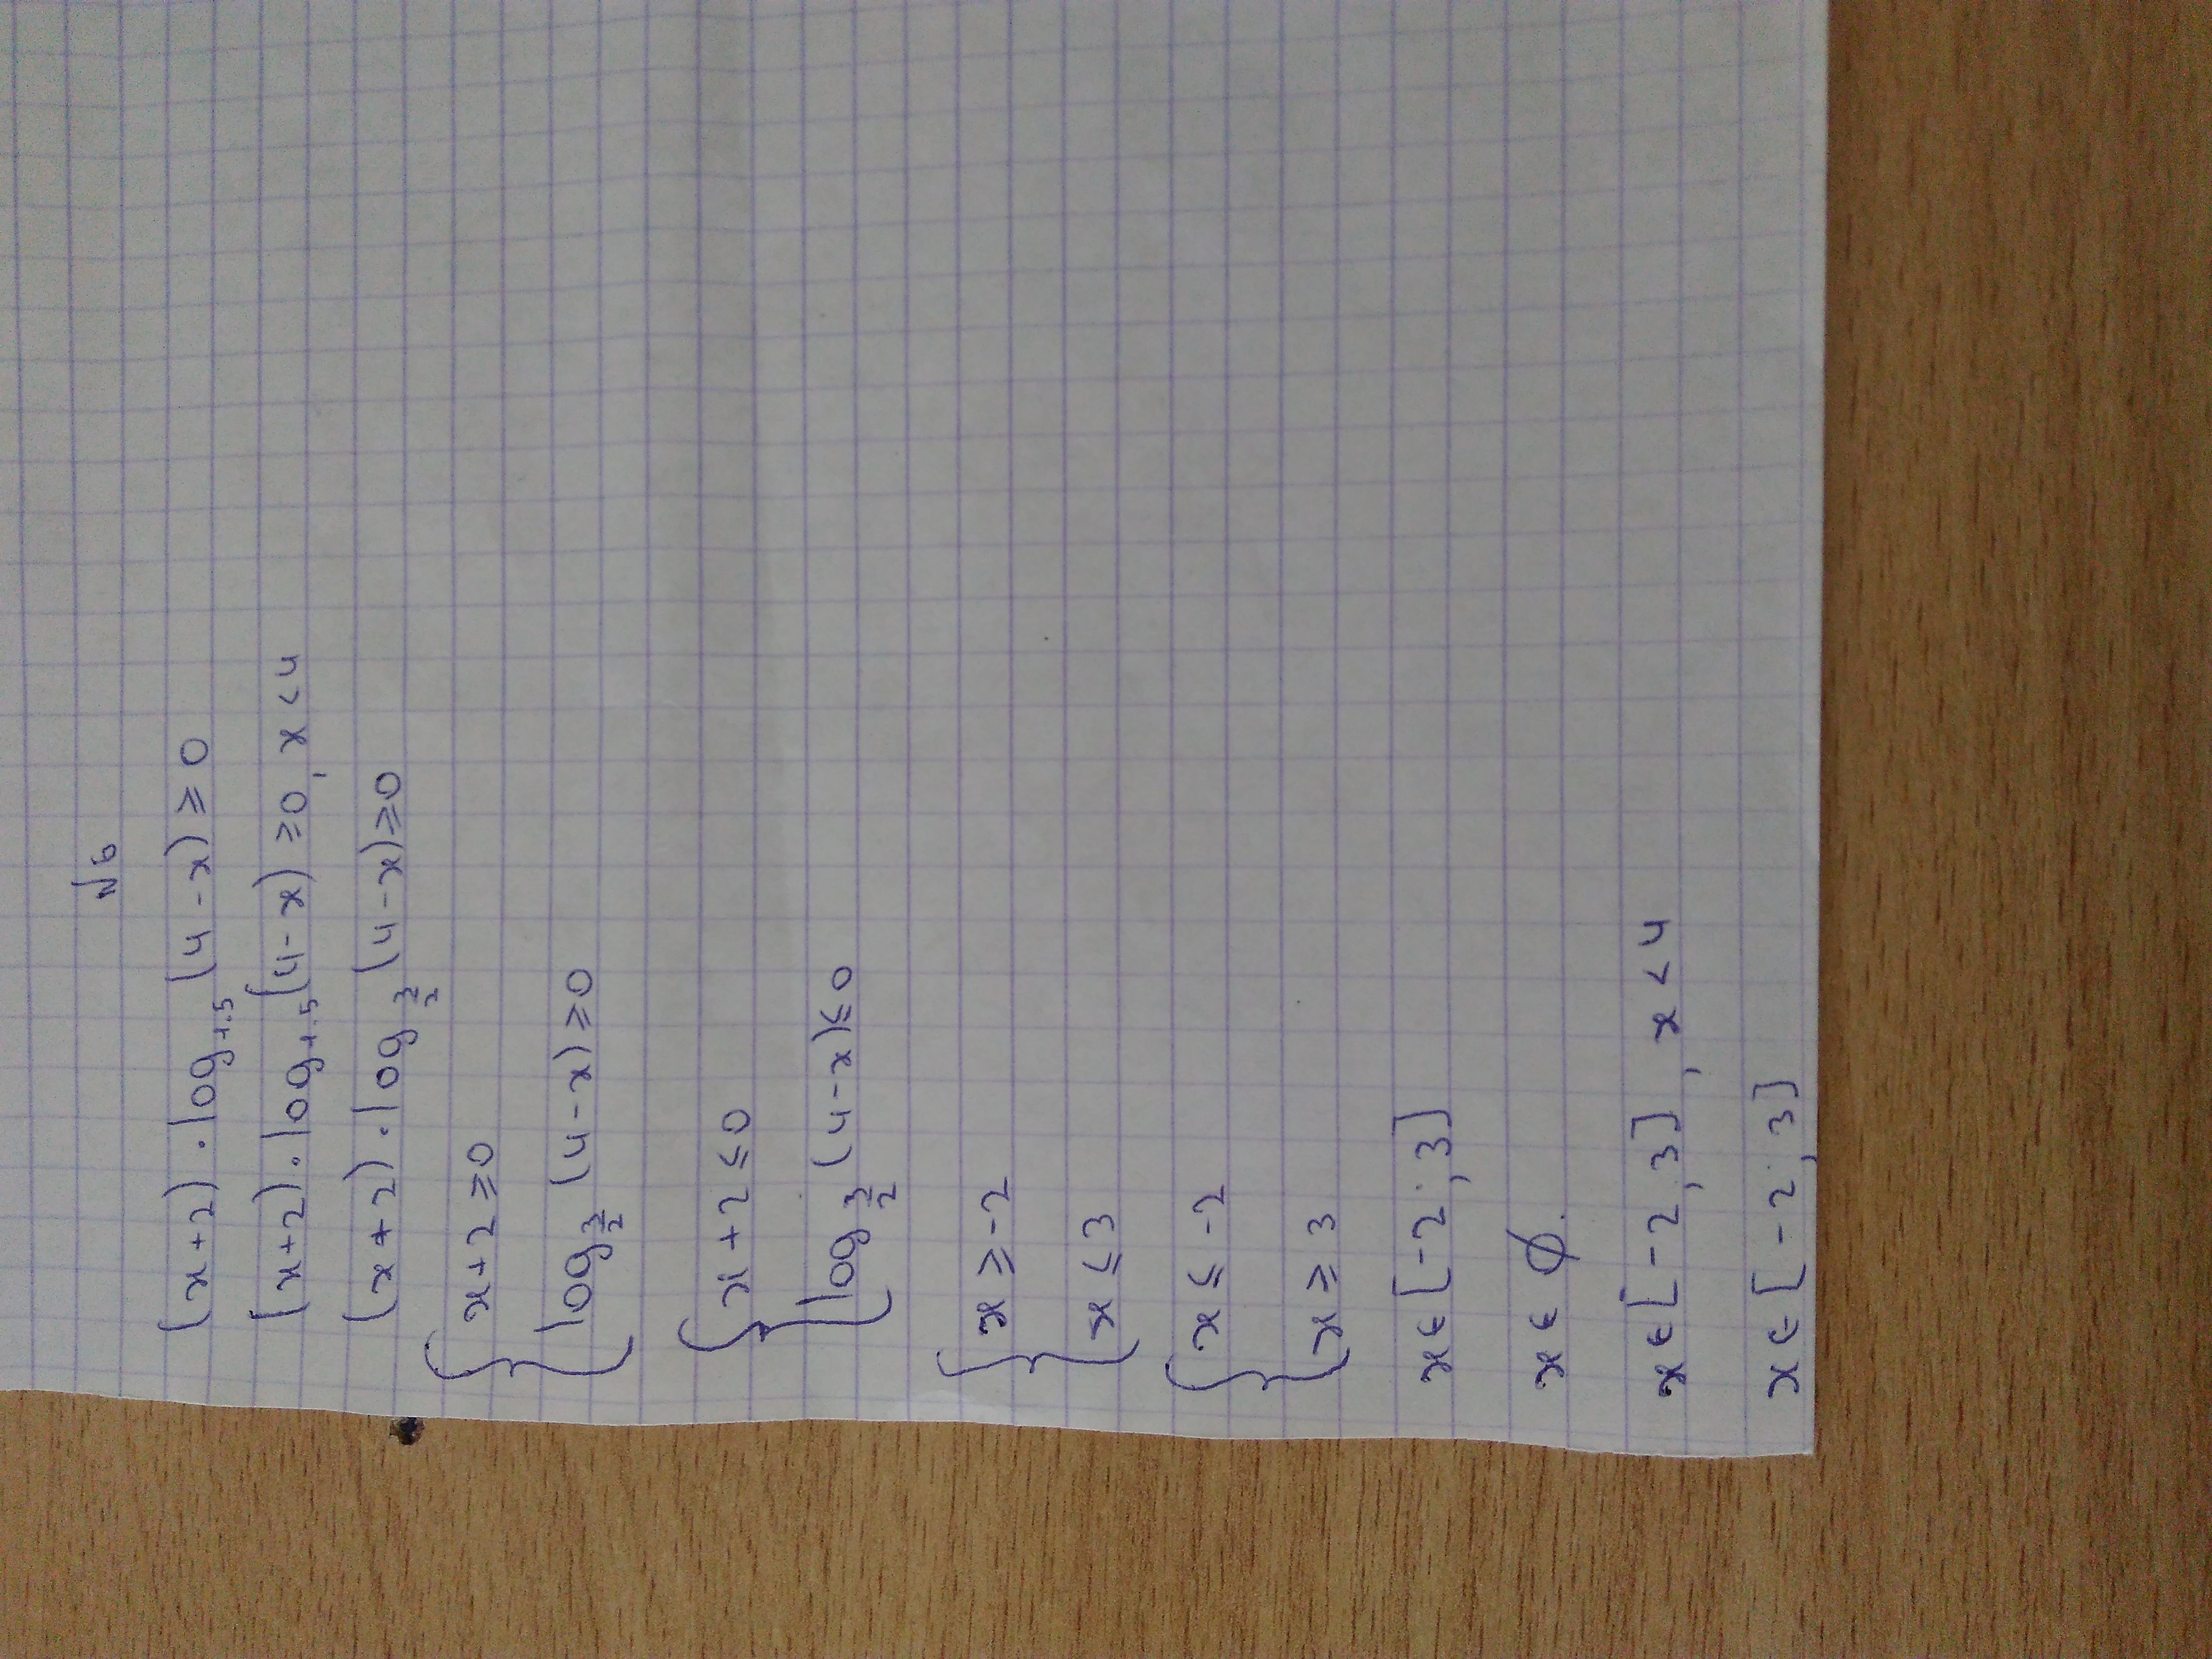 №6
(x+2)·log₁.₅(4-x)≥0
(x+2)·log₁.₅(4-x)≥0, x<4
(x+2)·log_{3/2}(4-x)≥0
{x+2≥0
log_{3/2}(4-x)≥0
{x+2≤0
log_{3/2}(4-x)≤0
{x≥-2
x≤3
{x≤-2
x≥3
x∈[-2;3]
x∈∅.
x∈[-2;3], x<4
x∈[-2;3]